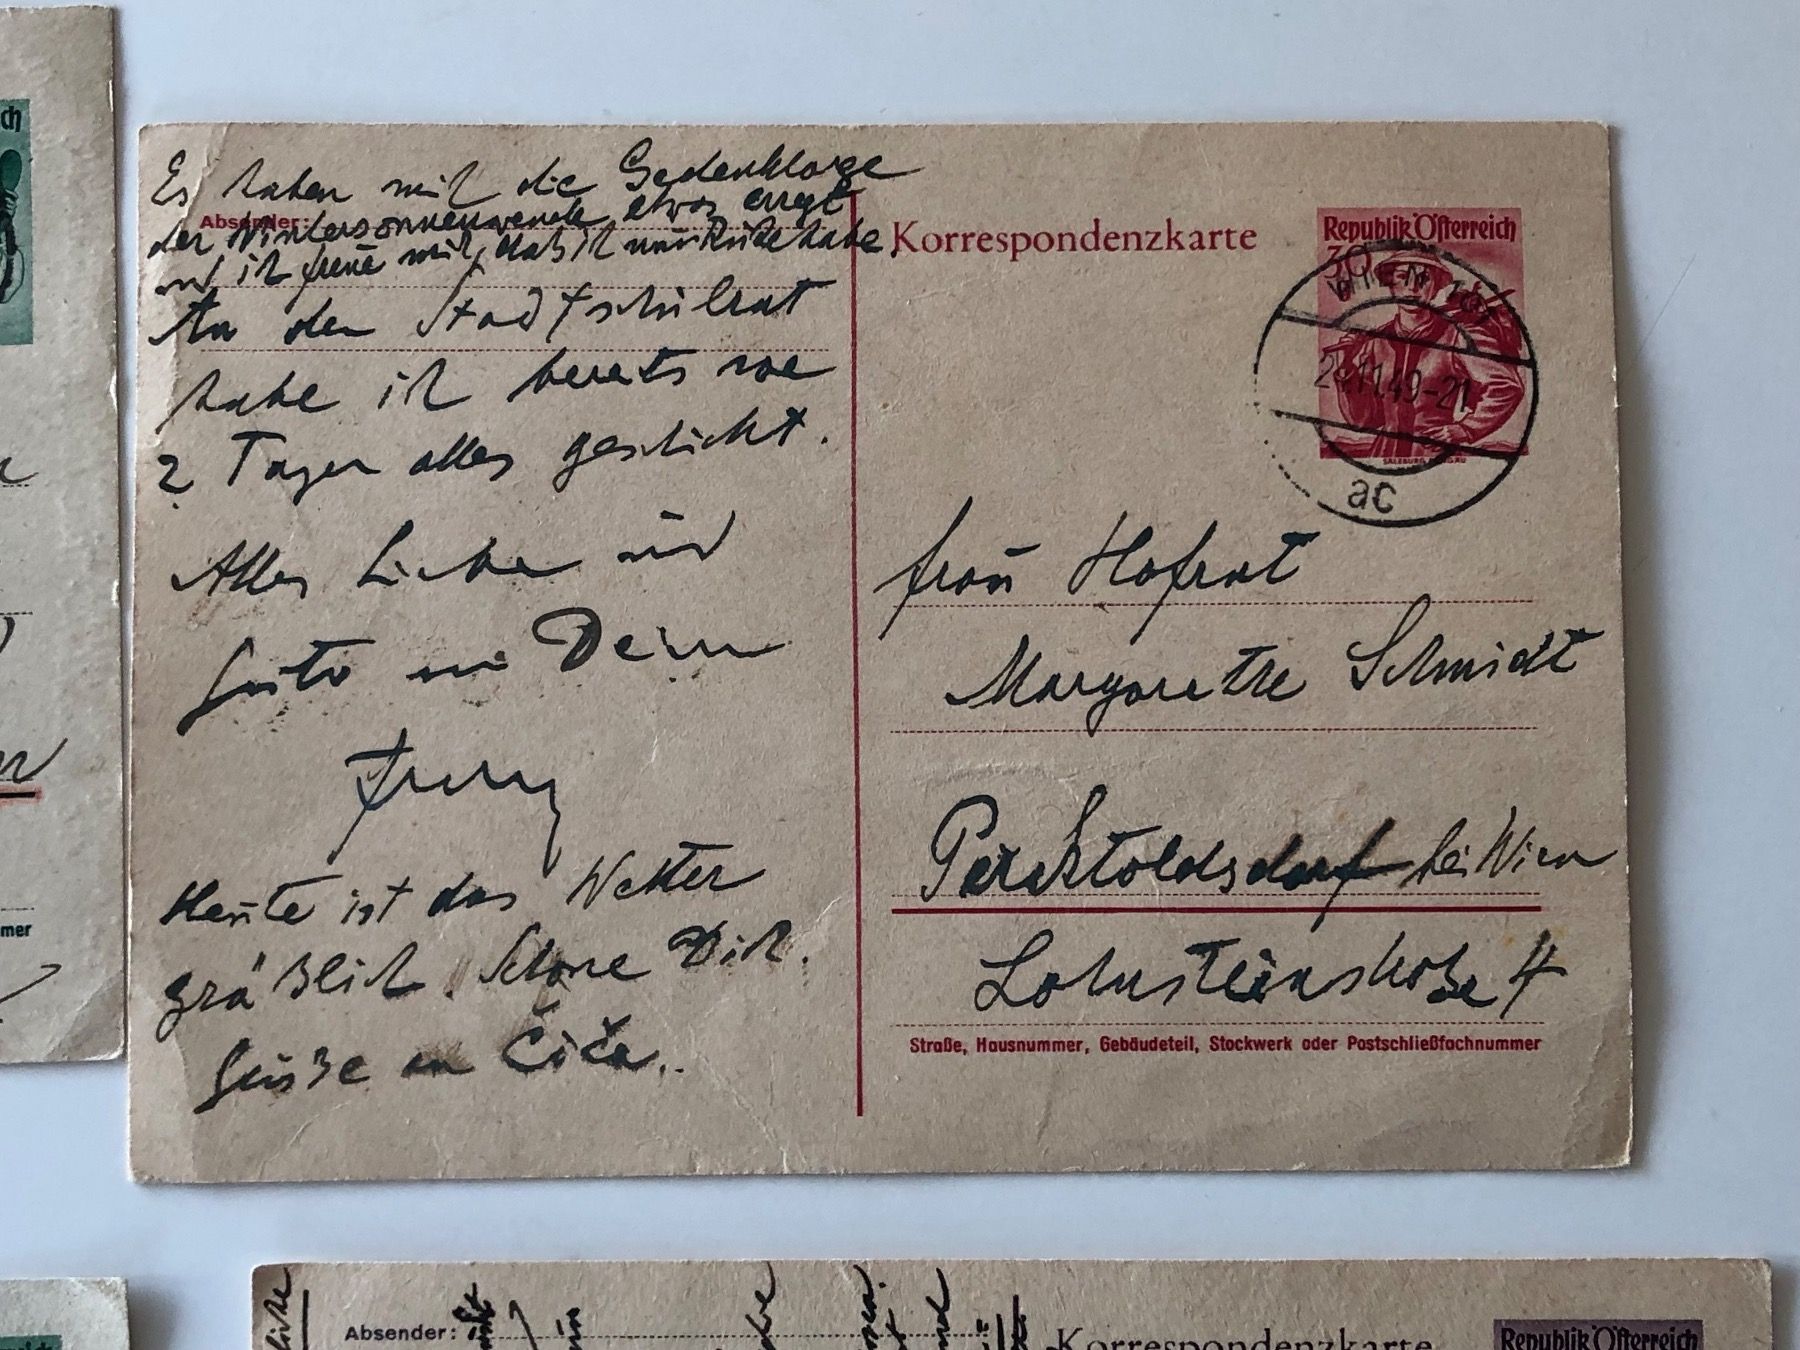 Es haben mich die Gedenktage
Absender:
der Wintersonnenwende etwas erregt
und ich freue mich, daß ich nun Ruhe habe.
An den Stadtschulrat
habe ich bereits vor
2 Tagen alles geschickt.
Alles Liebe und
Gute von Deinem
Heute ist das Wetter
gräßlich. Schone Dich.
Grüße an Čiča..
Korrespondenzkarte
Republik Österreich
30
WIEN
24.11.49-21
ac
Frau Hofrat
Margarethe Schmidt
Perchtoldsdorf bei Wien
Lohnsteinstraße 4
Straße, Hausnummer, Gebäudeteil, Stockwerk oder Postschließfachnummer
ch
mer
Absender:
Korrespondenzkarte
Republik Österreich